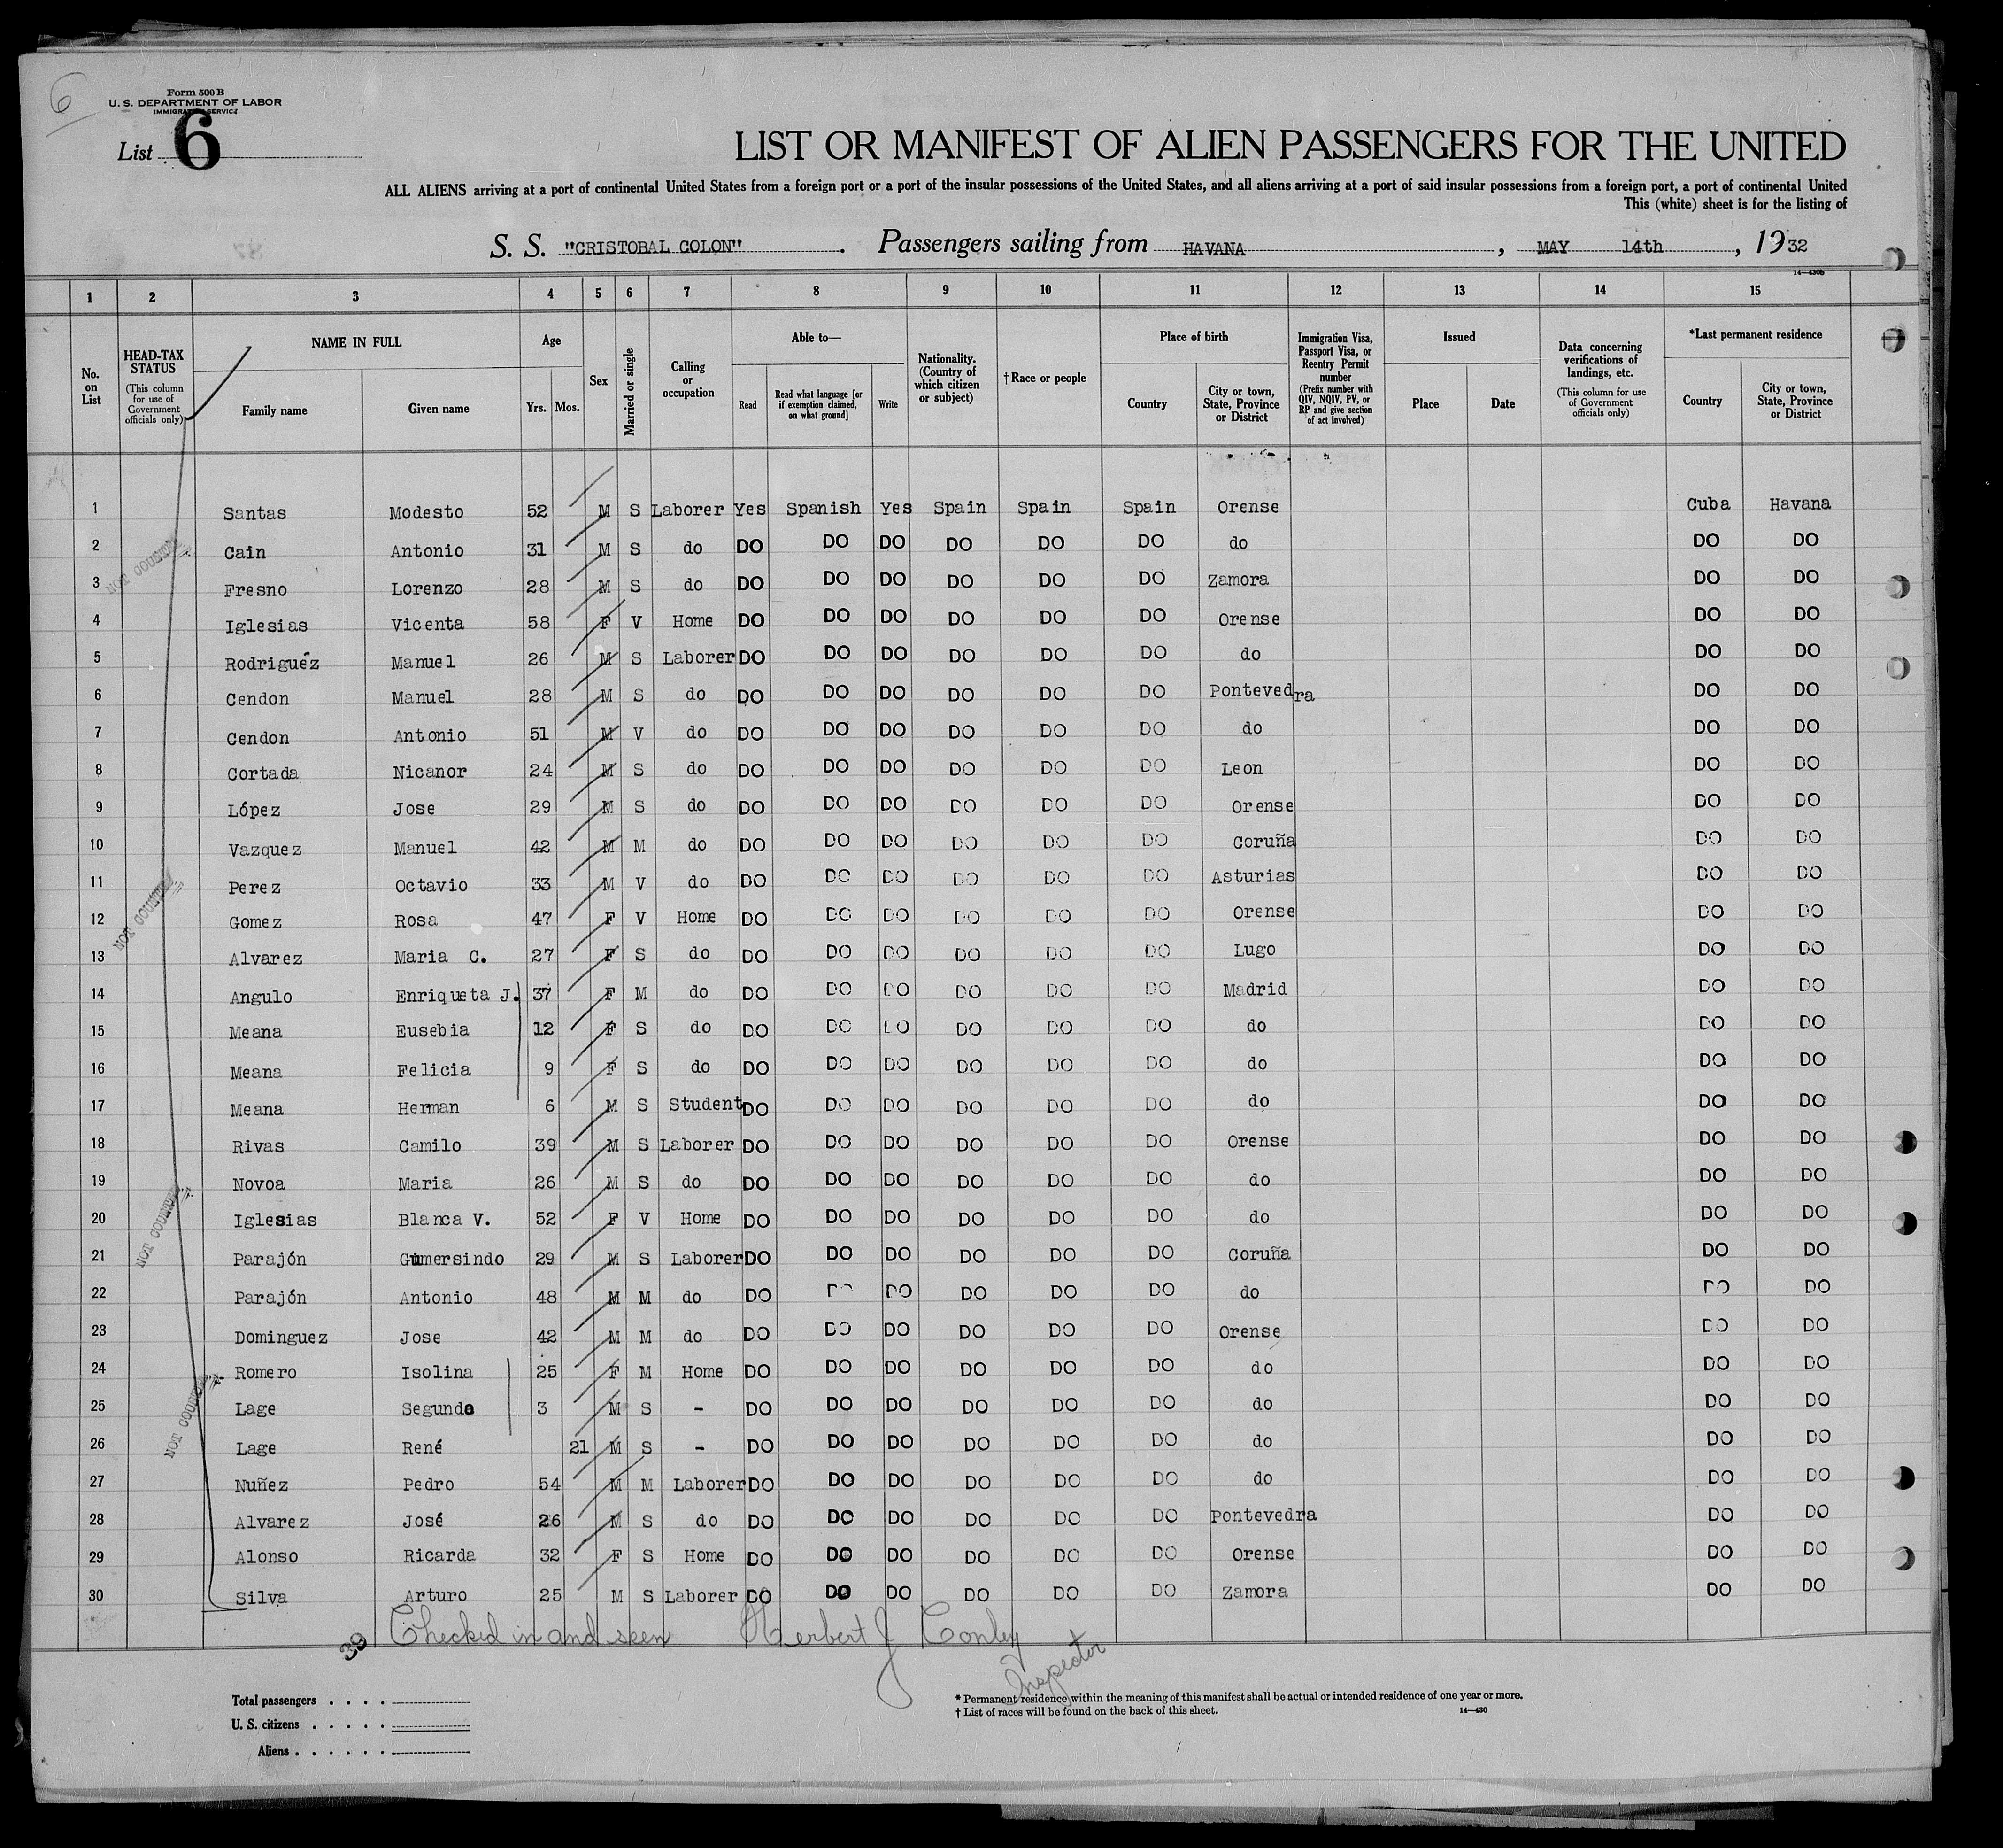 6
Form 500 B
U. S. DEPARTMENT OF LABOR
IMMIGRATION SERVICE
List 6
LIST OR MANIFEST OF ALIEN PASSENGERS FOR THE UNITED
ALL ALIENS arriving at a port of continental United States from a foreign port or a port of the insular possessions of the United States, and all aliens arriving at a port of said insular possessions from a foreign port, a port of continental United
This (white) sheet is for the listing of
S. S. "CRISTOBAL COLON". Passengers sailing from HAVANA, MAY 14th, 1932
14—430b
1 2 3 4 5 6 7 8 9 10 11 12 13 14 15
No. on List
HEAD-TAX STATUS (This column for use of Government officials only)
NAME IN FULL Family name Given name
Age Yrs. Mos.
Sex
Married or single
Calling or occupation
Able to— Read Read what language [or if exemption claimed, on what ground] Write
Nationality. (Country of which citizen or subject)
†Race or people
Place of birth Country City or town, State, Province or District
Immigration Visa, Passport Visa, or Reentry Permit number (Prefix number with QIV, NQIV, PV, or RP and give section of act involved)
Issued Place Date
Data concerning verifications of landings, etc. (This column for use of Government officials only)
*Last permanent residence Country City or town, State, Province or District
1 Santas Modesto 52 M S Laborer Yes Spanish Yes Spain Spain Spain Orense Cuba Havana
2 Cain Antonio 31 M S do DO DO DO DO DO DO do DO DO
3 Fresno Lorenzo 28 M S do DO DO DO DO DO DO Zamora DO DO
4 Iglesias Vicenta 58 F V Home DO DO DO DO DO DO Orense DO DO
5 Rodriguéz Manuel 26 M S Laborer DO DO DO DO DO DO do DO DO
6 Cendon Manuel 28 M S do DO DO DO DO DO DO Pontevedra DO DO
7 Cendon Antonio 51 M V do DO DO DO DO DO DO do DO DO
8 Cortada Nicanor 24 M S do DO DO DO DO DO DO Leon DO DO
9 López Jose 29 M S do DO DO DO DO DO DO Orense DO DO
10 Vazquez Manuel 42 M M do DO DO DO DO DO DO Coruña DO DO
11 Perez Octavio 33 M V do DO DO DO DO DO DO Asturias DO DO
12 Gomez Rosa 47 F V Home DO DO DO DO DO DO Orense DO DO
13 Alvarez Maria C. 27 F S do DO DO DO DO DO DO Lugo DO DO
14 Angulo Enriqueta J. 37 F M do DO DO DO DO DO DO Madrid DO DO
15 Meana Eusebia 12 F S do DO DO DO DO DO DO do DO DO
16 Meana Felicia 9 F S do DO DO DO DO DO DO do DO DO
17 Meana Herman 6 M S Student DO DO DO DO DO DO do DO DO
18 Rivas Camilo 39 M S Laborer DO DO DO DO DO DO Orense DO DO
19 Novoa Maria 26 M S do DO DO DO DO DO DO do DO DO
20 Iglesias Blanca V. 52 F V Home DO DO DO DO DO DO do DO DO
21 Parajón Gumersindo 29 M S Laborer DO DO DO DO DO DO Coruña DO DO
22 Parajón Antonio 48 M M do DO DO DO DO DO DO do DO DO
23 Dominguez Jose 42 M M do DO DO DO DO DO DO Orense DO DO
24 Romero Isolina 25 F M Home DO DO DO DO DO DO do DO DO
25 Lage Segundo 3 M S - DO DO DO DO DO DO do DO DO
26 Lage René 21 M S - DO DO DO DO DO DO do DO DO
27 Nuñez Pedro 54 M M Laborer DO DO DO DO DO DO do DO DO
28 Alvarez José 26 M S do DO DO DO DO DO DO Pontevedra DO DO
29 Alonso Ricarda 32 F S Home DO DO DO DO DO DO Orense DO DO
30 Silva Arturo 25 M S Laborer DO DO DO DO DO DO Zamora DO DO
NOT COUNTED
NOT COUNTED
NOT COUNTED
NOT COUNTED
39 Checked in and seen Herbert J Conley
Inspector
Total passengers
U. S. citizens
Aliens
* Permanent residence within the meaning of this manifest shall be actual or intended residence of one year or more.
† List of races will be found on the back of this sheet.
14—430